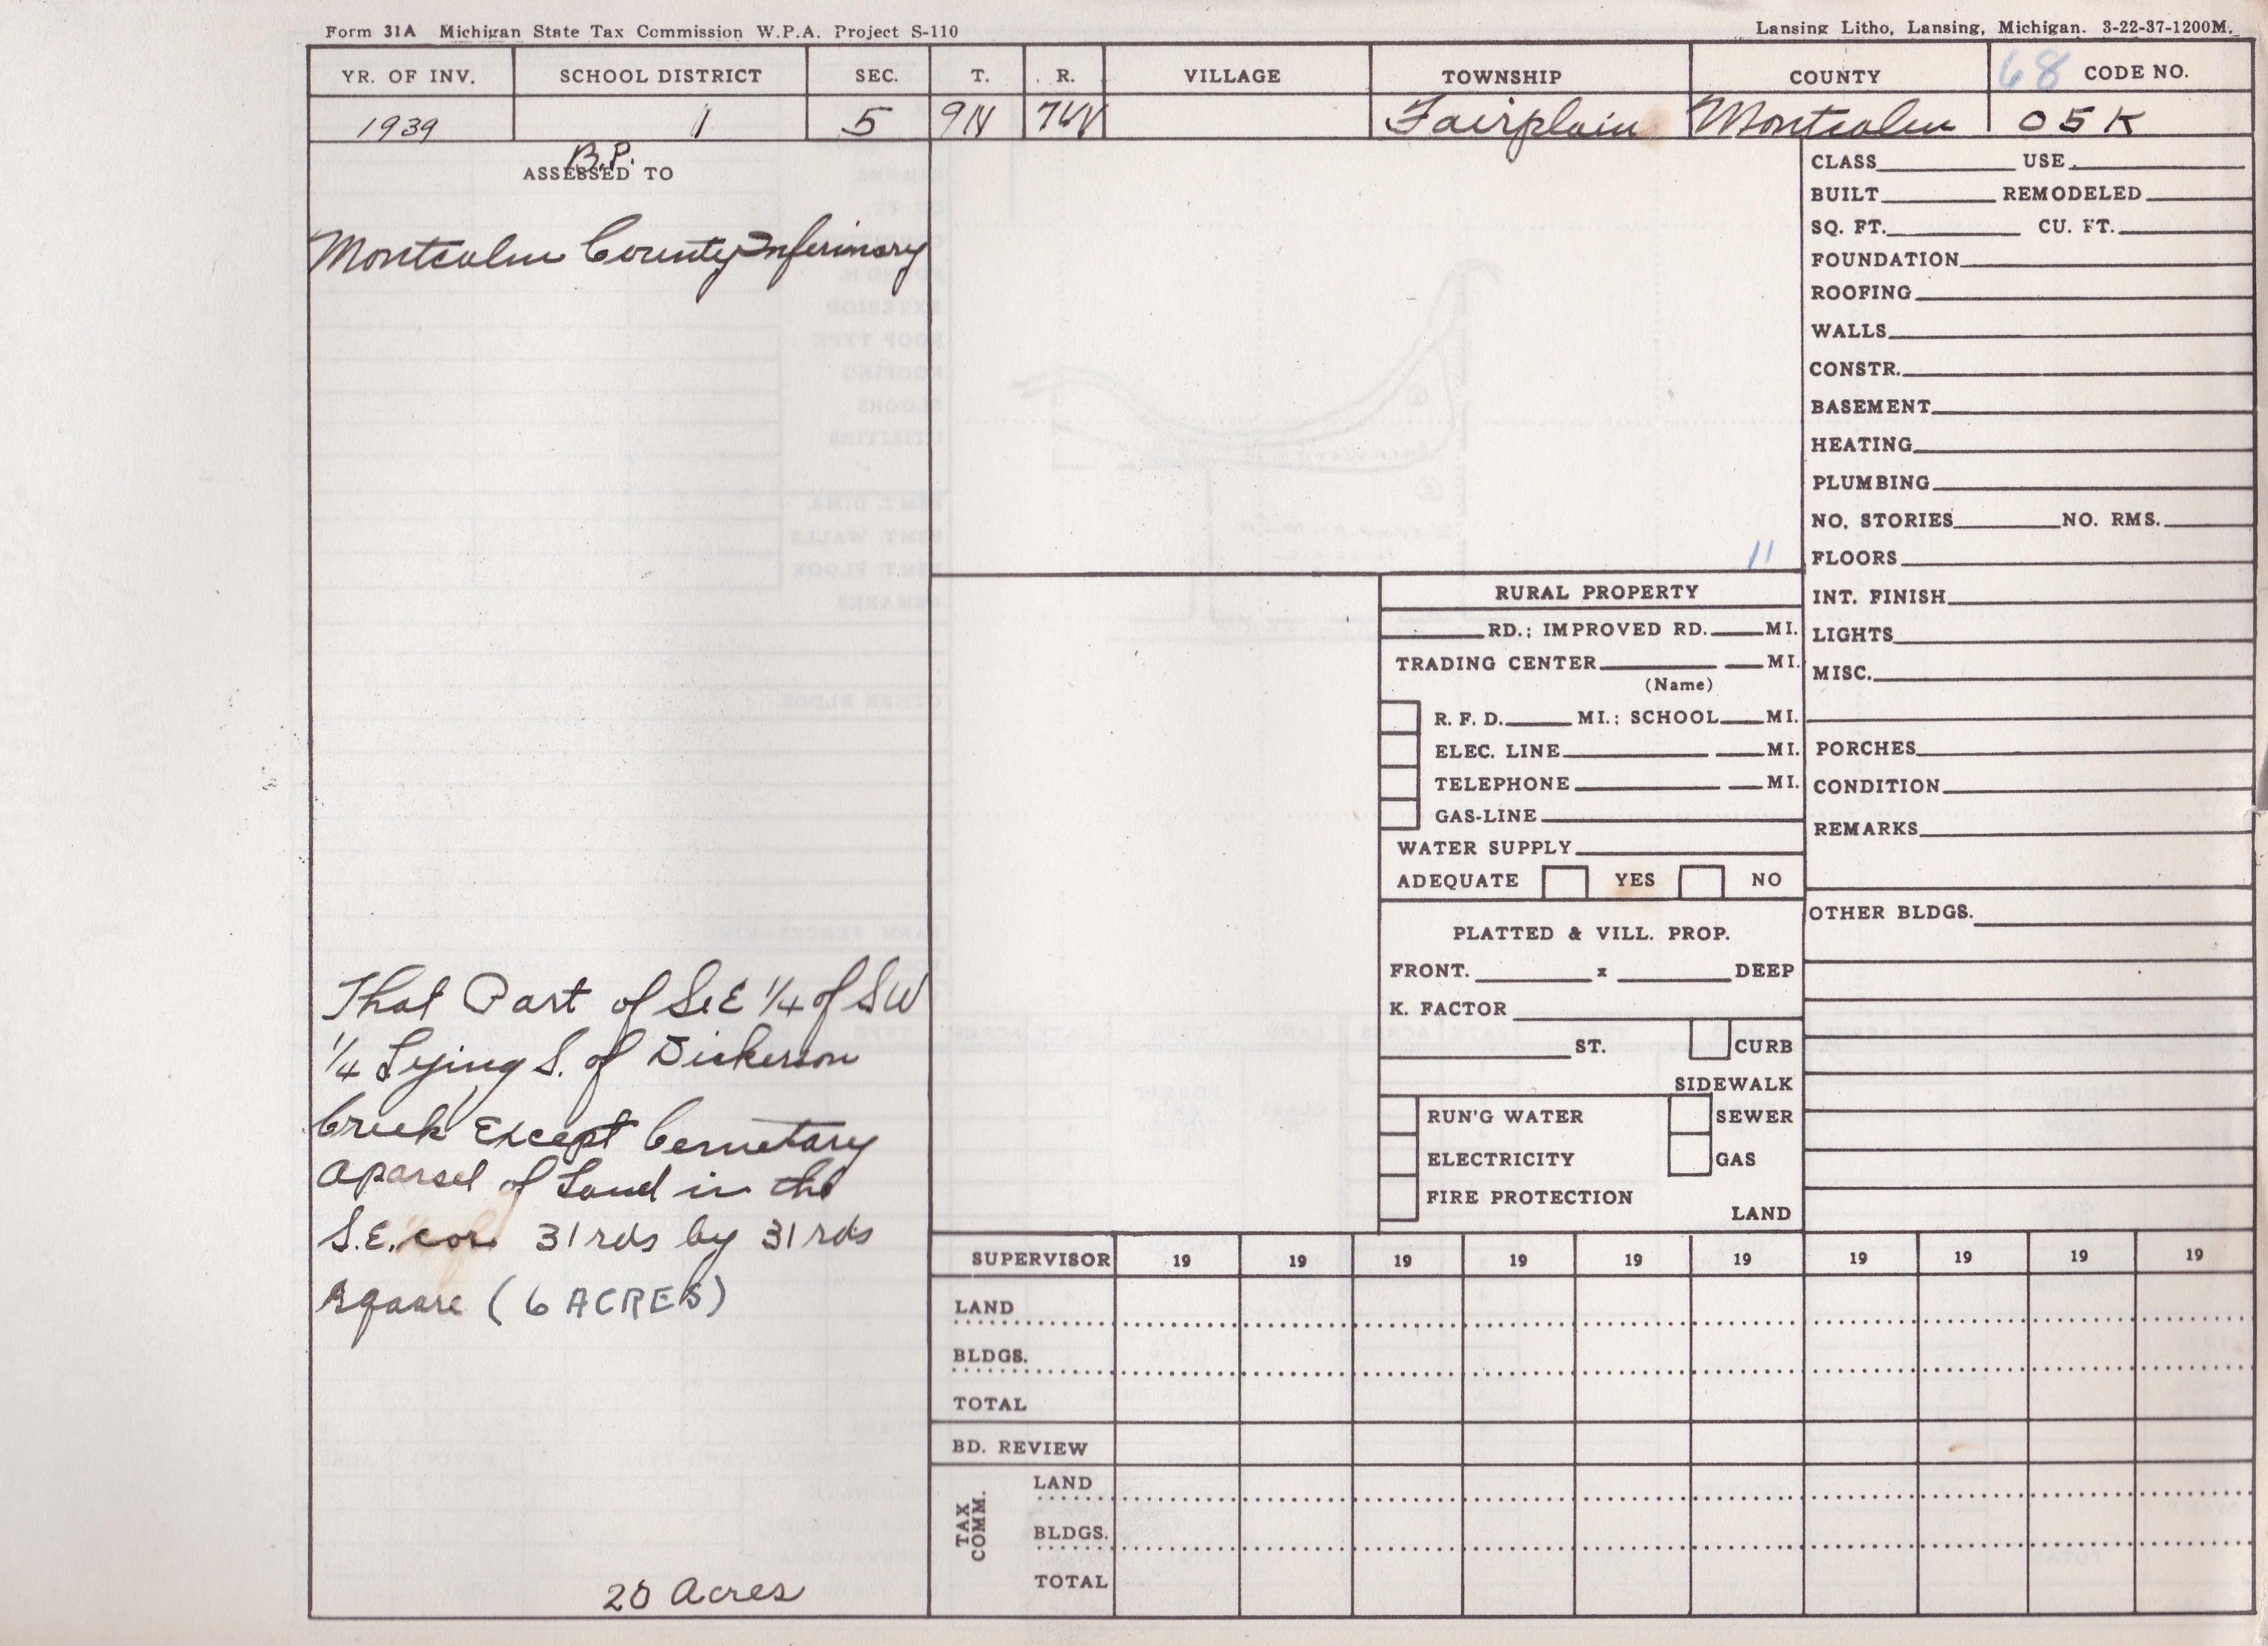 Form 31A Michigan State Tax Commission W.P.A. Project S-110
Lansing Litho, Lansing, Michigan. 3-22-37-1200M.
YR. OF INV. SCHOOL DISTRICT SEC. T. R. VILLAGE TOWNSHIP COUNTY 68 CODE NO.
1939 1 5 9N 7W Fairplain Montcalm 05K
B.P.
ASSESSED TO
Montcalm County Inferimary
That Part of S.E 1/4 of SW
1/4 Lying S. of Dickerson
Creek Except Cemetary
a parsel of Land in the
S.E. cor. 31 rds by 31 rds
square (6 ACRES)
20 Acres
11
RURAL PROPERTY
RD.; IMPROVED RD. MI.
TRADING CENTER MI.
(Name)
R. F. D. MI.; SCHOOL MI.
ELEC. LINE MI.
TELEPHONE MI.
GAS-LINE
WATER SUPPLY
ADEQUATE YES NO
PLATTED & VILL. PROP.
FRONT. x DEEP
K. FACTOR
ST. CURB
SIDEWALK
RUN'G WATER SEWER
ELECTRICITY GAS
FIRE PROTECTION
LAND
CLASS USE
BUILT REMODELED
SQ. FT. CU. FT.
FOUNDATION
ROOFING
WALLS
CONSTR.
BASEMENT
HEATING
PLUMBING
NO. STORIES NO. RMS.
FLOORS
INT. FINISH
LIGHTS
MISC.
PORCHES
CONDITION
REMARKS
OTHER BLDGS.
SUPERVISOR 19 19 19 19 19 19 19 19 19 19
LAND
BLDGS.
TOTAL
BD. REVIEW
TAX COMM.
LAND
BLDGS.
TOTAL